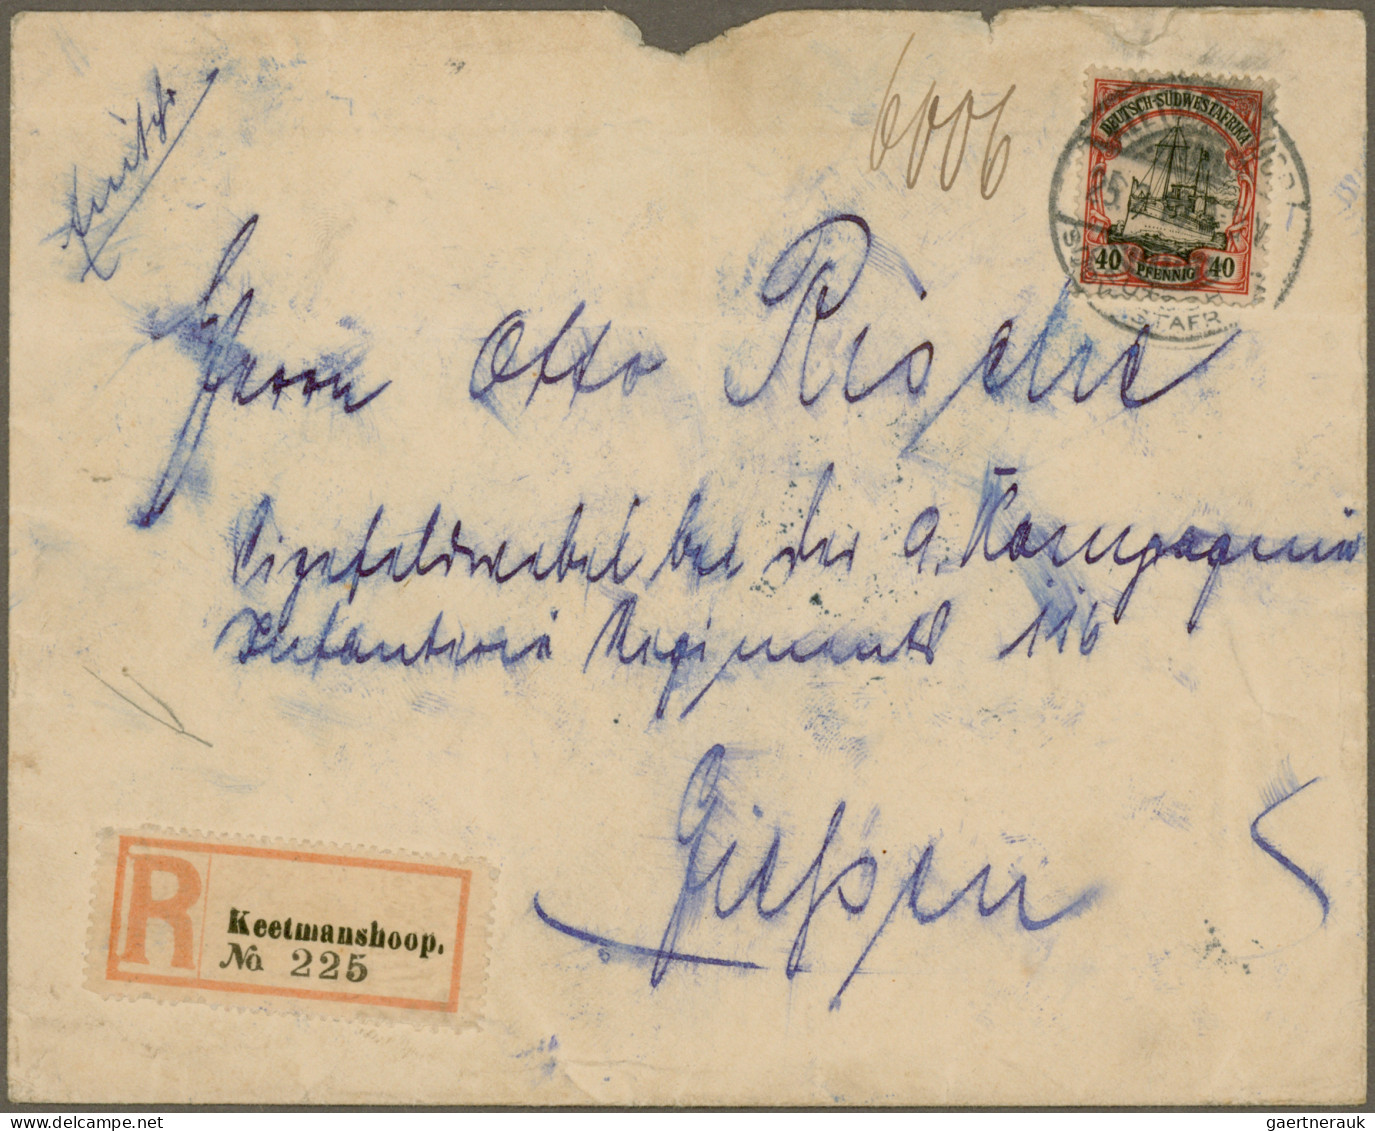 6006
DEUTSCH-SÜDWESTAFRIKA
40 PFENNIG 40
Herrn Otto Rische
Vizefeldwebel bei der 9. Kompagnie
Infanterie Regiments 116
Gießen
R
Keetmanshoop.
No 225
gaertnerauk